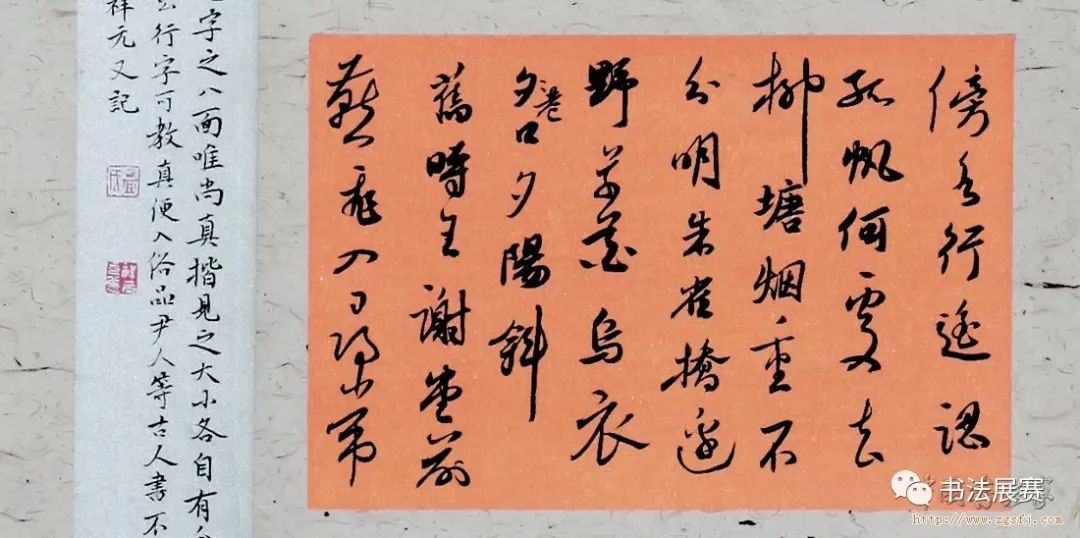 傍行遙認
孤帆何處去
柳塘烟重不
分明朱雀橋邊
野草花烏衣
夕巷口夕陽斜
舊時王謝堂前
燕飛入尋常
字之八面唯尚真揩見之大小各自有分
行字可教真便入俗品尹人等古人書不
祥元又記
书法展赛
http://www.zgsfj.com